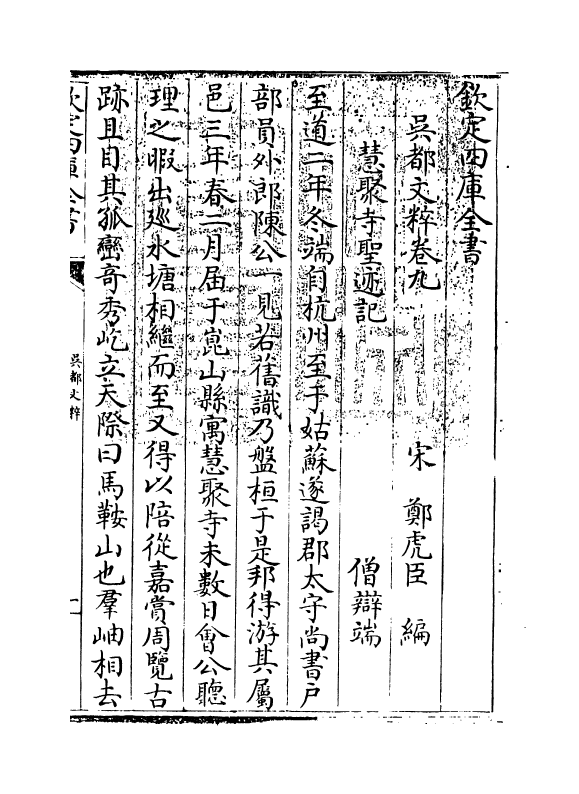 欽定四庫全書
吳都文粹卷九　宋　鄭虎臣　編
慧聚寺聖迹記　僧辯端
至道二年冬端自杭州至于姑蘇遂謁郡太守尚書户
部員外郎陳公一見若舊識乃盤桓于是邦得游其屬
邑三年春二月届于崑山縣寓慧聚寺未數日會公聽
理之暇出廵水塘相繼而至又得以陪從嘉賞周覽古
跡且目其孤巒奇秀屹立天際曰馬鞍山也羣岫相去
欽定四庫全書
吳都文粹
一